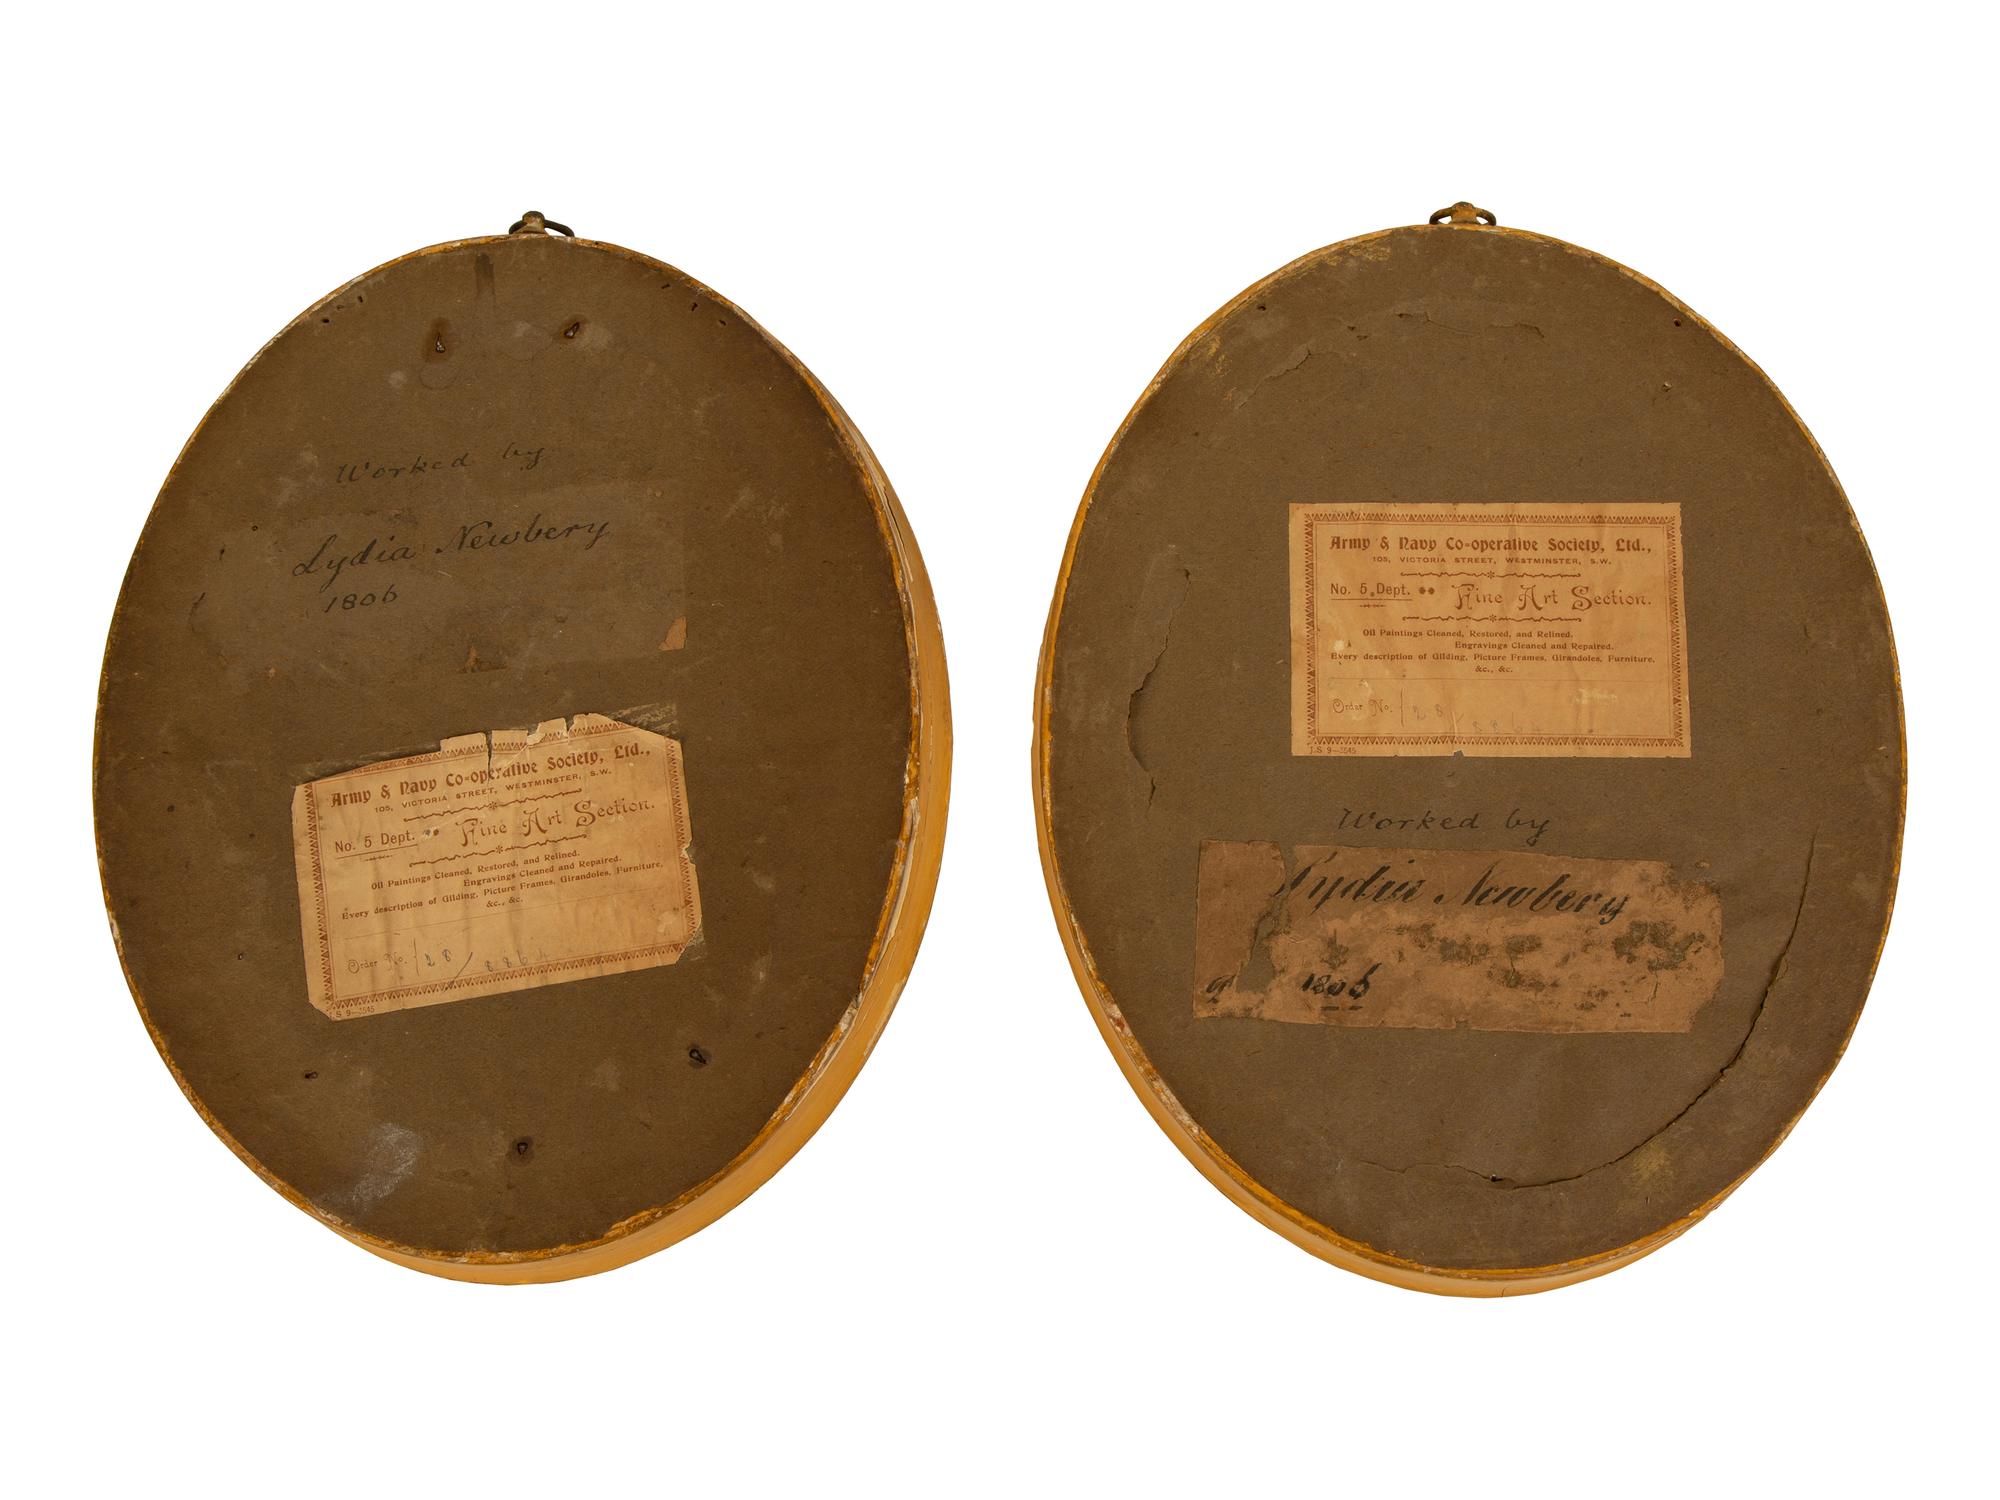 Worked by
Lydia Newbery
1806
Army & Navy Co-operative Society, Ltd.,
105, VICTORIA STREET, WESTMINSTER, S.W.
No. 5 Dept. Fine Art Section.
Oil Paintings Cleaned, Restored, and Relined.
Engravings Cleaned and Repaired.
Every description of Gilding, Picture Frames, Girandoles, Furniture,
&c., &c.
Order No. 128/8864
S 9—3545
Army & Navy Co-operative Society, Ltd.,
105, VICTORIA STREET, WESTMINSTER, S.W.
No. 5 Dept. Fine Art Section.
Oil Paintings Cleaned, Restored, and Relined.
Engravings Cleaned and Repaired.
Every description of Gilding, Picture Frames, Girandoles, Furniture,
&c., &c.
Order No. 128/8864
J.S 9—3545
Worked by
Lydia Newbery
1806